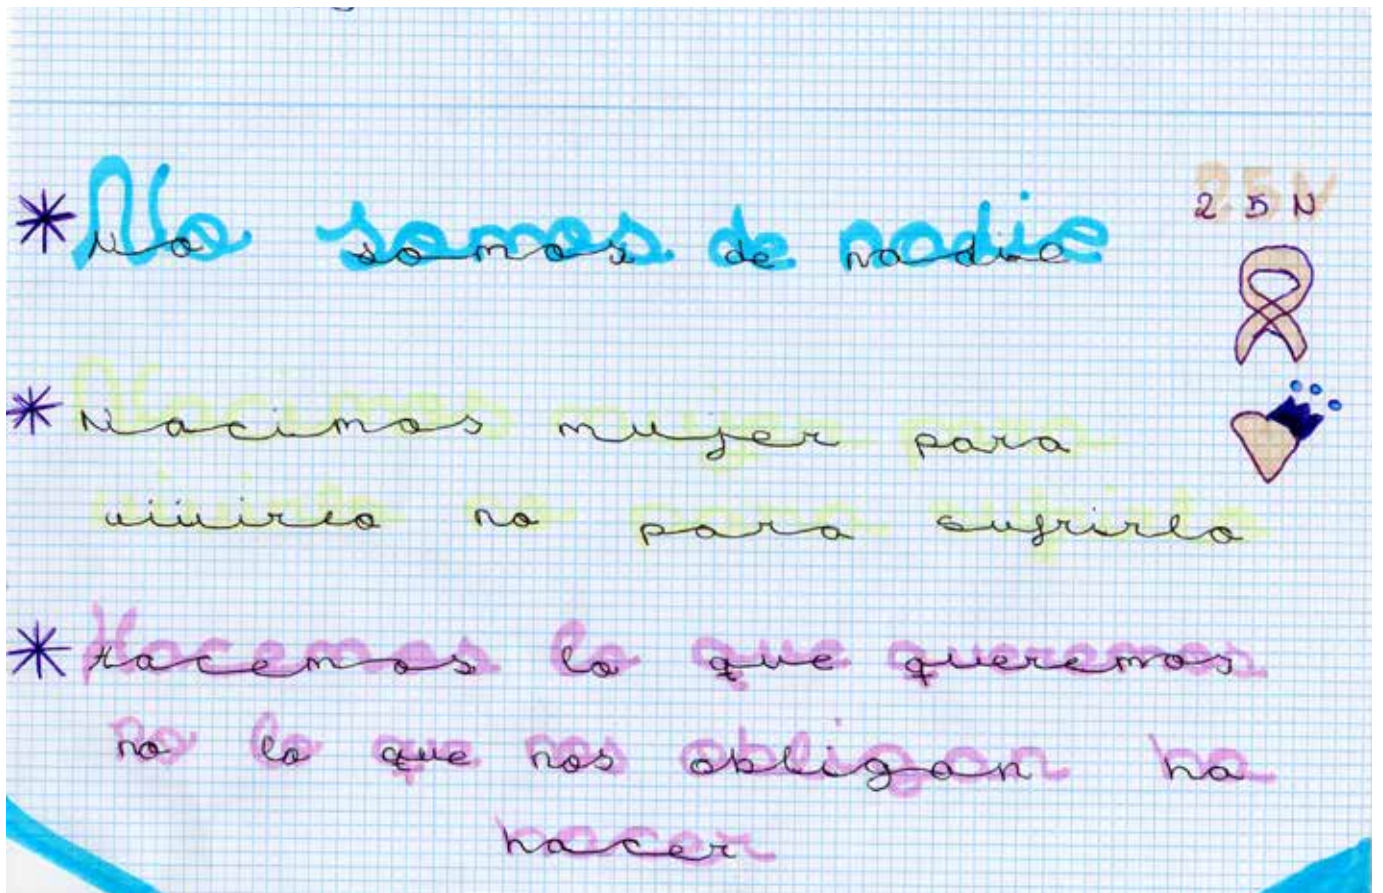 * No somos de nadie
25N
* Nacimos mujer para
vivirlo no para sufrirlo
* Hacemos lo que queremos
no lo que nos obligan ha
hacer